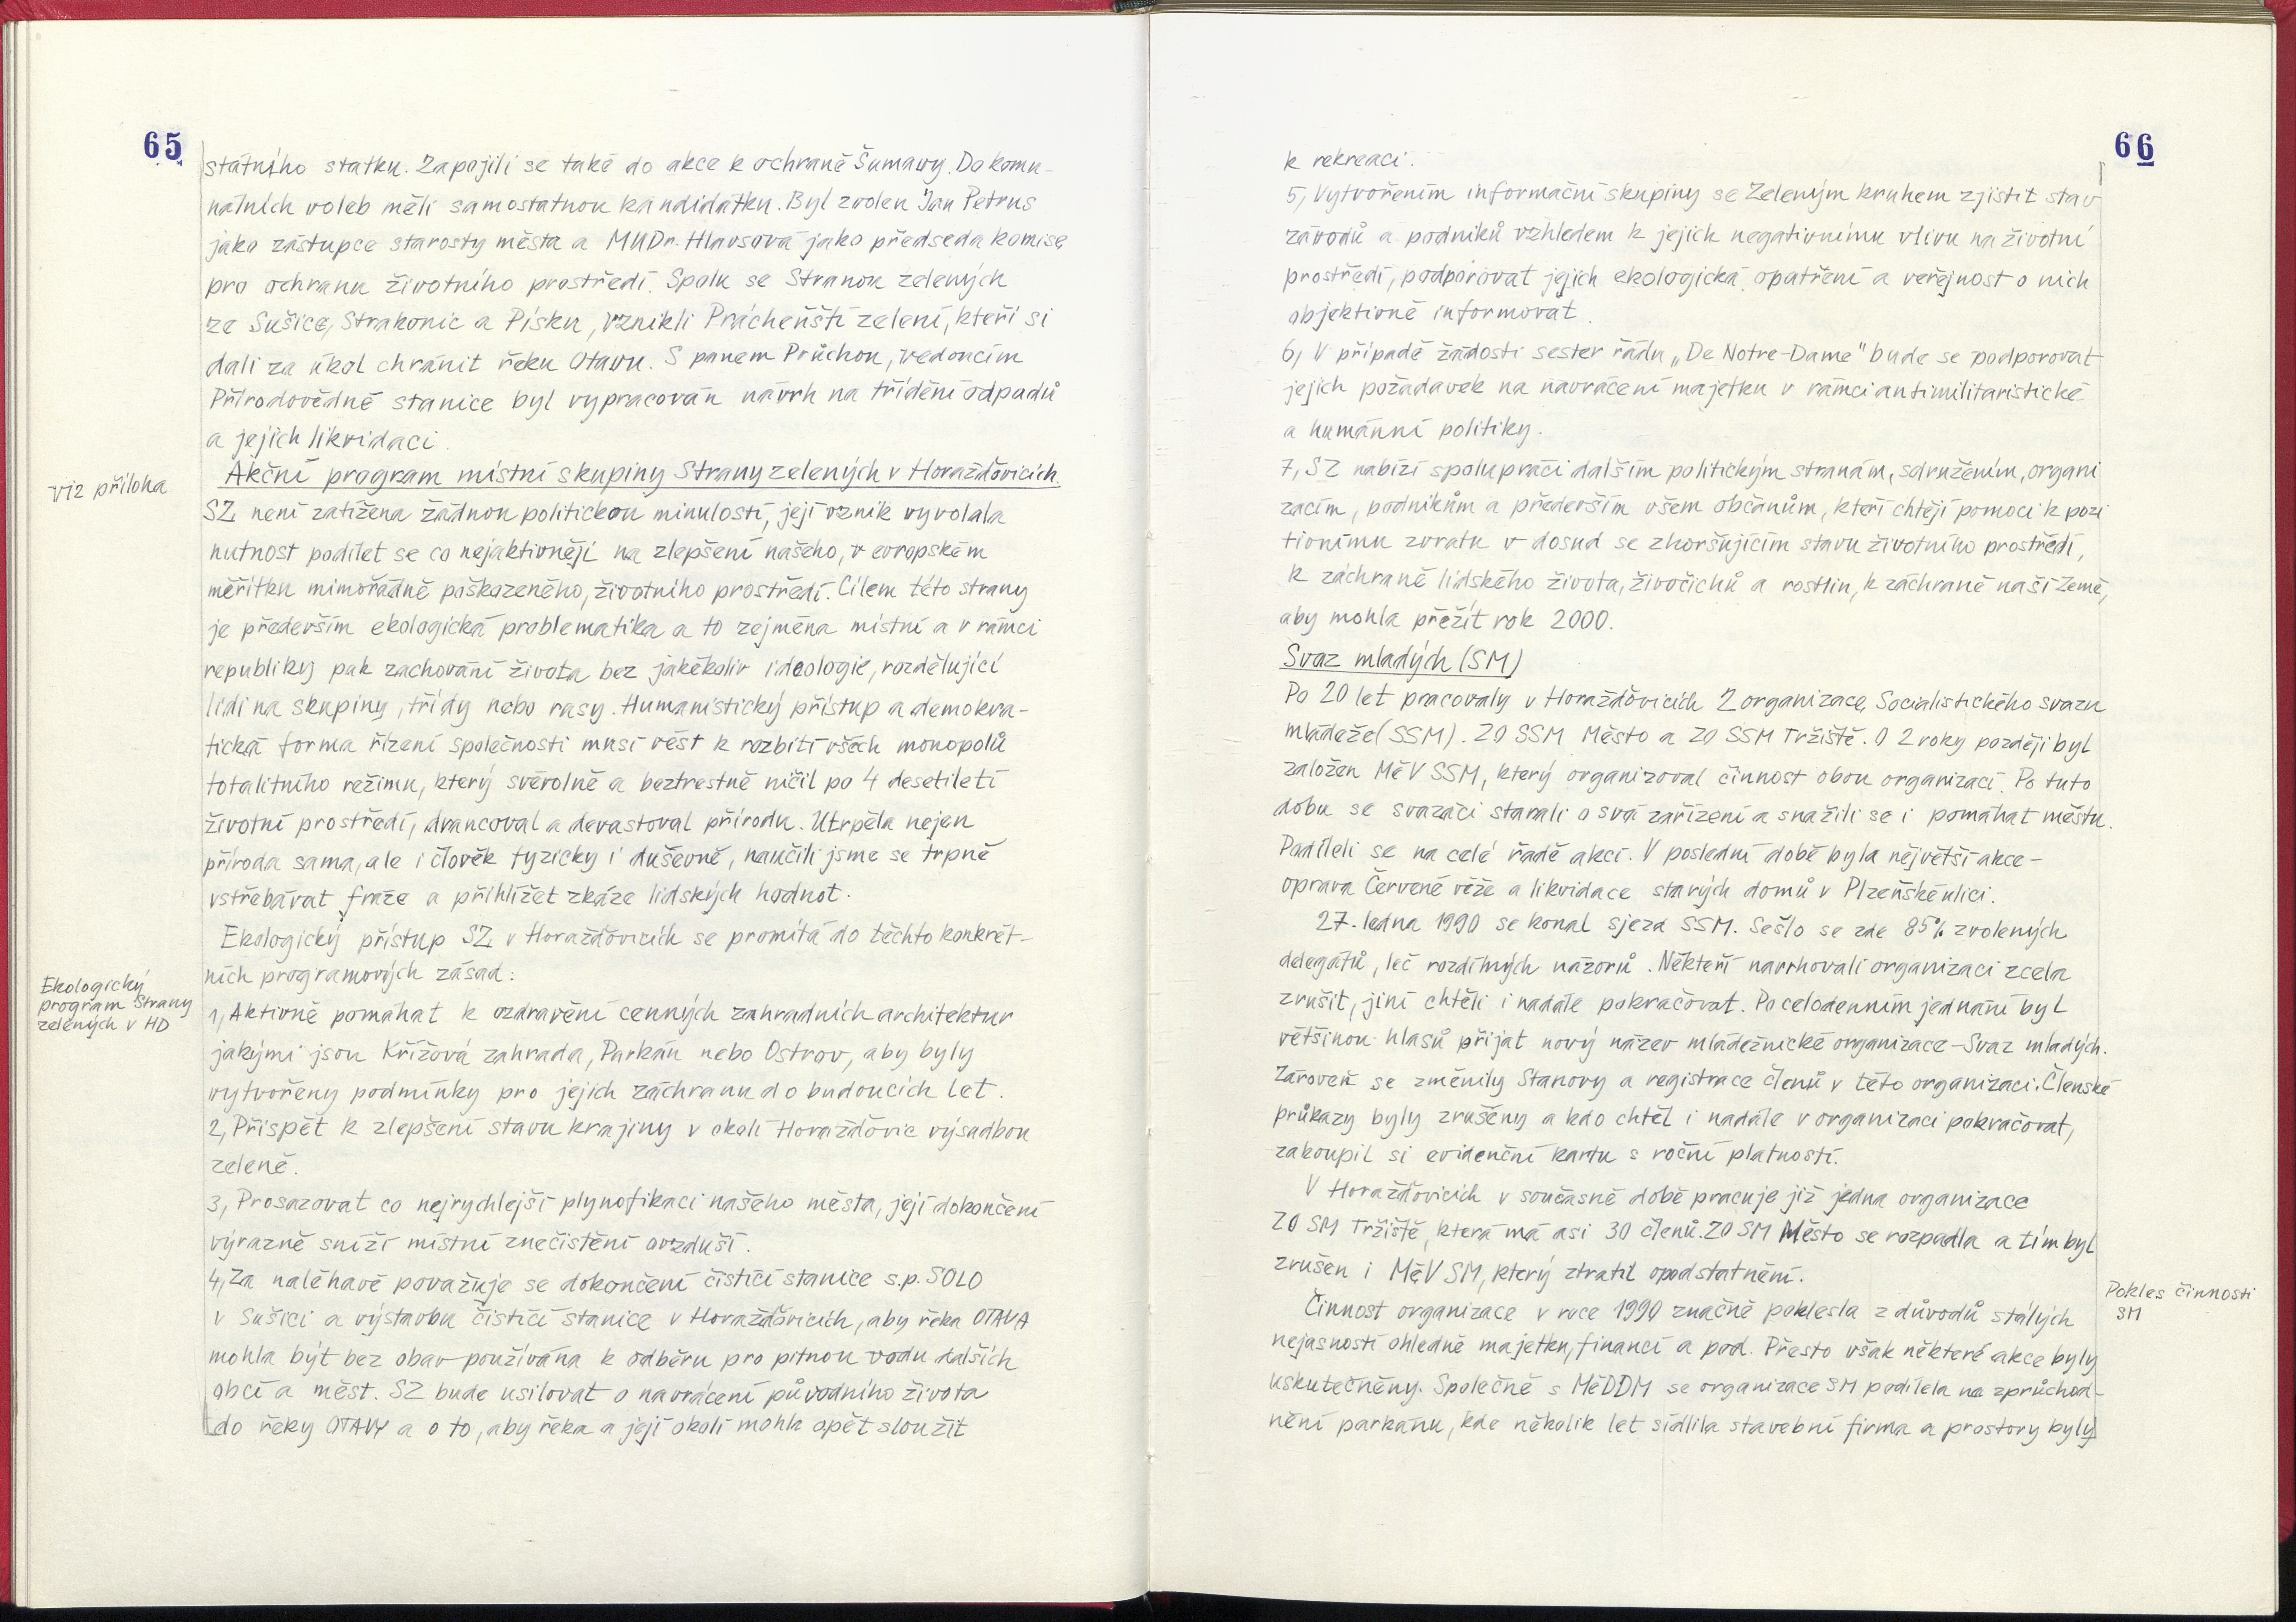 65
státního statku. Zapojili se také do akce k ochraně Šumavy. Do komu-
nálních voleb měli samostatnou kandidátku. Byl zvolen Jan Petrus
jako zástupce starosty města a MUDr. Hlavsová jako předseda komise
pro ochranu životního prostředí. Spolu se Stranou zelených
ze Sušice, Strakonic a Písku, vznikli Prácheňští zelení, kteří si
dali za úkol chránit řeku Otavu. S panem Průchou, vedoucím
Přírodovědné stanice byl vypracován návrh na třídění odpadů
a jejich likvidaci.
Akční program místní skupiny Strany zelených v Horažďovicích.
viz příloha
SZ není zatížena žádnou politickou minulostí, její vznik vyvolala
nutnost podílet se co nejaktivněji na zlepšení našeho, v evropském
měřítku mimořádně poškozeného, životního prostředí. Cílem této strany
je především ekologická problematika a to zejména místní a v rámci
republiky pak zachování života bez jakékoliv ideologie, rozdělující
lidi na skupiny, třídy nebo rasy. Humanistický přístup a demokra-
tická forma řízení společnosti musí vést k rozbití všech monopolů
totalitního režimu, který svévolně a beztrestně ničil po 4 desetiletí
životní prostředí, drancoval a devastoval přírodu. Utrpěla nejen
příroda sama, ale i člověk fyzicky i duševně, naučili jsme se trpně
vstřebávat fráze a přihlížet zkáze lidských hodnot.
Ekologický přístup SZ v Horažďovicích se promítá do těchto konkrét-
ních programových zásad:
Ekologický
program Strany
zelených v HD
1, Aktivně pomáhat k ozdravění cenných zahradních architektur
jakými jsou Křížová zahrada, Parkán nebo Ostrov, aby byly
vytvořeny podmínky pro jejich záchranu do budoucích let.
2, Přispět k zlepšení stavu krajiny v okolí Horažďovic výsadbou
zeleně.
3, Prosazovat co nejrychlejší plynofikaci našeho města, její dokončení
výrazně sníží místní znečistění ovzduší.
4, Za naléhavé považuje se dokončení čistící stanice s.p. SOLO
v Sušici a výstavbu čistící stanice v Horažďovicích, aby řeka OTAVA
mohla být bez obav používána k odběru pro pitnou vodu dalších
obcí a měst. SZ bude usilovat o navrácení původního života
do řeky OTAVY a o to, aby řeka a její okolí mohla opět sloužit
66
k rekreaci.
5, Vytvořením informační skupiny se Zeleným kruhem zjistit stav
závodů a podniků vzhledem k jejich negativnímu vlivu na životní
prostředí, podporovat jejich ekologická opatření a veřejnost o nich
objektivně informovat.
6, V případě žádosti sester řádu „De Notre-Dame" bude se podporovat
jejich požadavek na navrácení majetku v rámci antimilitaristické
a humánní politiky.
7, SZ nabízí spolupráci dalším politickým stranám, sdružením, organi
zacím, podnikům a především všem občanům, kteří chtějí pomoci k pozi
tivnímu zvratu v dosud se zhoršujícím stavu životního prostředí,
k záchraně lidského života, živočichů a rostlin, k záchraně naší Země,
aby mohla přežít rok 2000.
Svaz mladých (SM)
Po 20 let pracovaly v Horažďovicích 2 organizace Socialistického svazu
mládeže (SSM). ZO SSM Město a ZO SSM Tržiště. O 2 roky později byl
založen MěV SSM, který organizoval činnost obou organizací. Po tuto
dobu se svazáci starali o svá zařízení a snažili se i pomáhat městu.
Podíleli se na celé řadě akcí. V poslední době byla největší akce -
oprava Červené věže a likvidace starých domů v Plzeňské ulici.
27. ledna 1990 se konal sjezd SSM. Sešlo se zde 85% zvolených
delegátů, leč rozdílných názorů. Někteří navrhovali organizaci zcela
zrušit, jiní chtěli i nadále pokračovat. Po celodenním jednání byl
většinou hlasů přijat nový název mládežnické organizace - Svaz mladých.
Zároveň se změnily Stanovy a registrace členů v této organizaci. Členské
průkazy byly zrušeny a kdo chtěl i nadále v organizaci pokračovat,
zakoupil si evidenční kartu s roční platností.
V Horažďovicích v současné době pracuje již jedna organizace
ZO SM Tržiště, která má asi 30 členů. ZO SM Město se rozpadla a tím byl
zrušen i MěV SM, který ztratil opodstatnění.
Pokles činnosti
SM
Činnost organizace v roce 1990 značně poklesla z důvodů stálých
nejasností ohledně majetku, financí a pod. Přesto však některé akce byly
uskutečněny. Společně s MěDDM se organizace SM podílela na zprůchod-
nění parkánu, kde několik let sídlila stavební firma a prostory byly